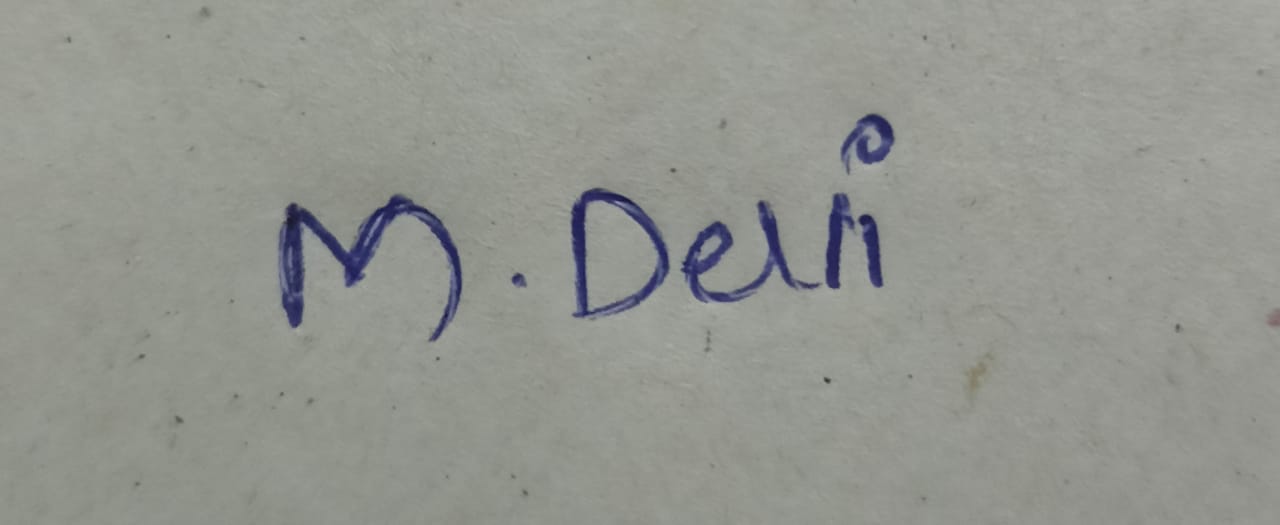 M. Devi